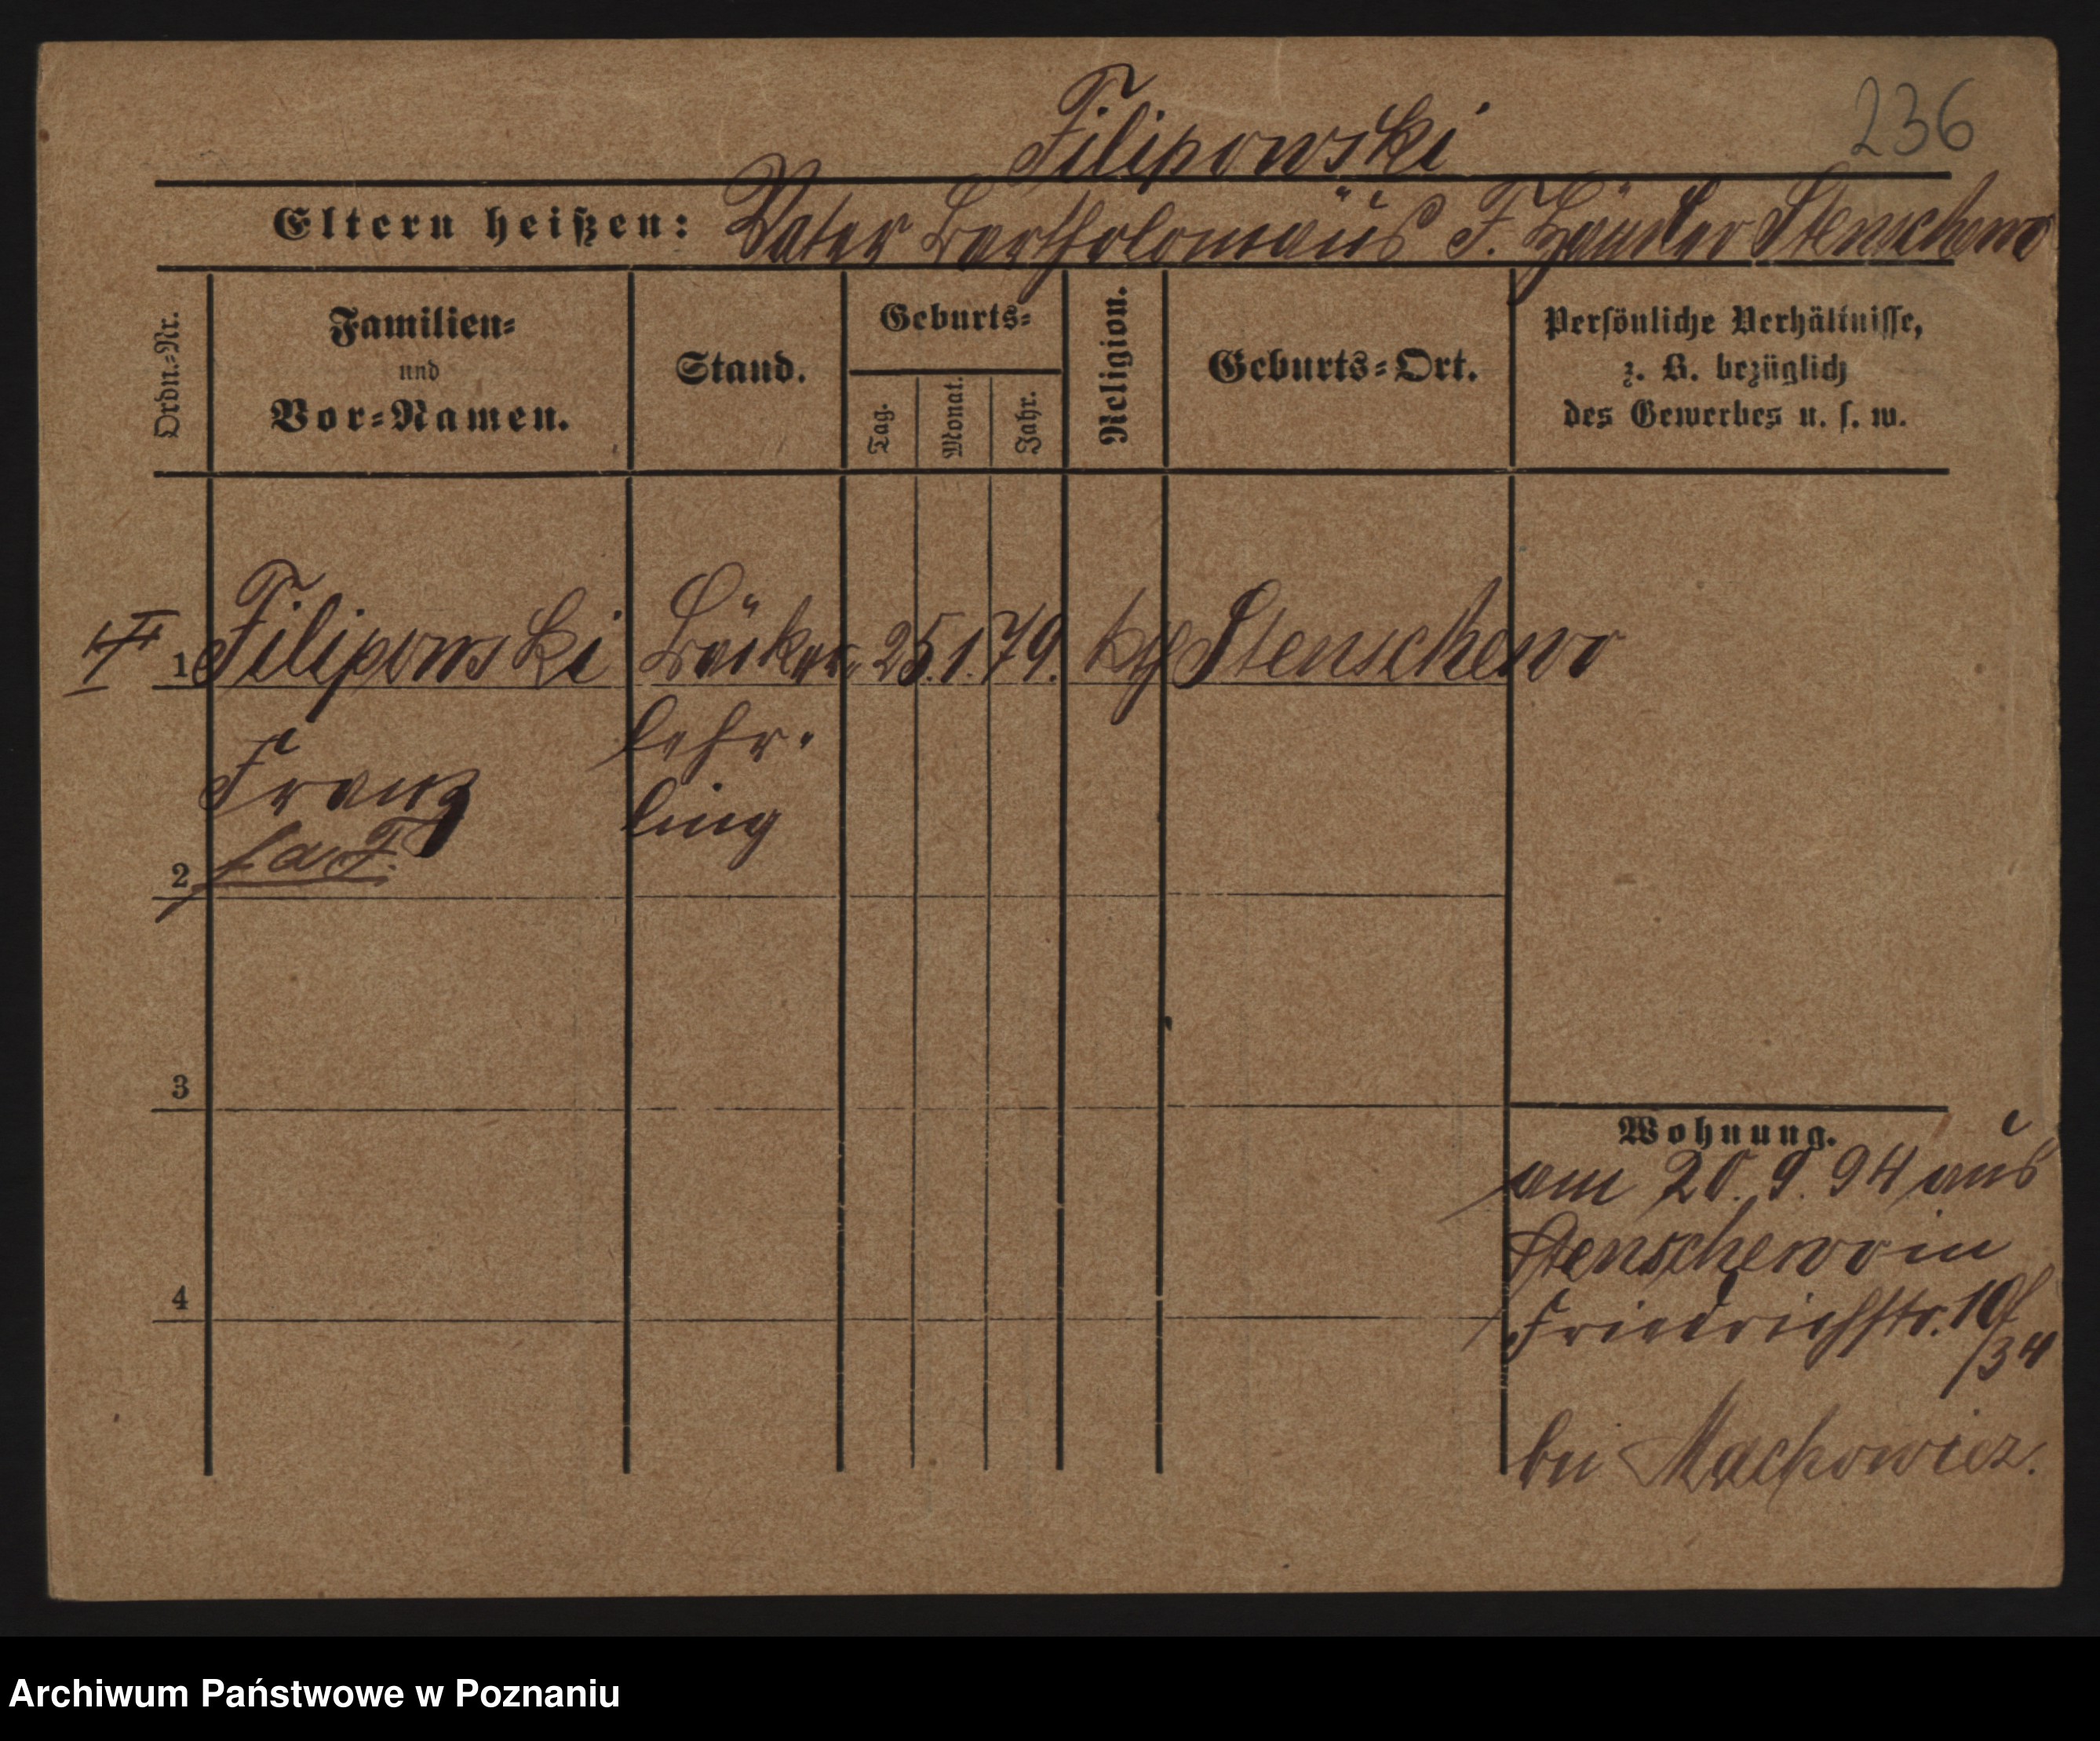 236
Filipowski
Eltern heißen: Vater Bartholomäus F. Stenschewo
Ordn.-Nr.
Familien-
und
Vor-Namen.
Stand.
Geburts-
Tag.
Monat.
Jahr.
Religion.
Geburts-Ort.
Persönliche Verhältnisse,
z. B. bezüglich
des Gewerbes u. s. w.
1 Filipowski Bäcker- 25. 1. 79. kth Stenschewo
lehr-
Franz
ling
2
3
4
Wohnung.
am 20. 9. 94 aus
Stenschewo in
Friedrichstr.
/34
bei Machowicz.
Archiwum Państwowe w Poznaniu